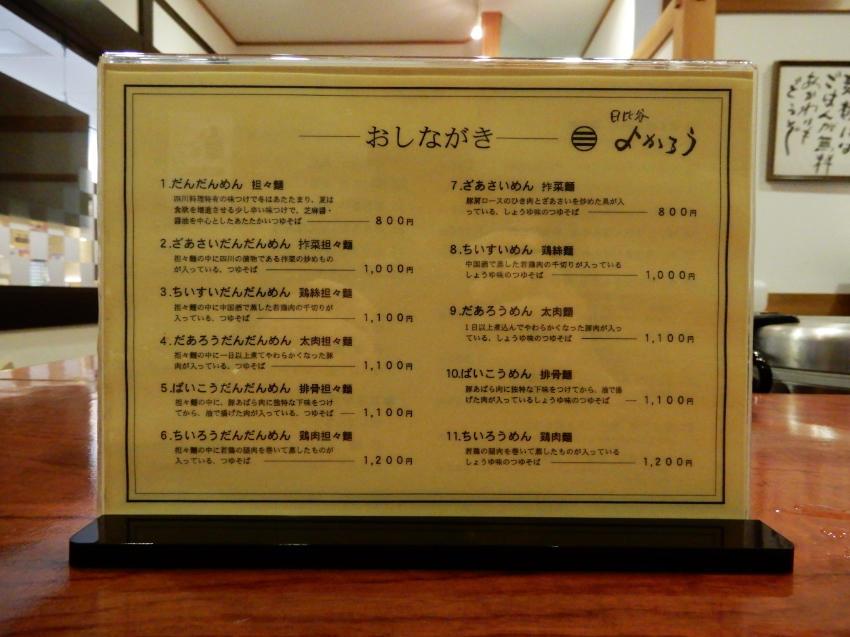 おしながき
日比谷
よかろう
1.だんだんめん 担々麺
四川料理特有の味つけで冬はあたたまり、夏は
食欲を増進させる少し辛い味つけで、芝麻醤・
醤油を中心としたあたたかいつゆそば 800円
2.ざあさいだんだんめん 搾菜担々麺
担々麺の中に四川の漬物である搾菜の炒めもの
が入っている、つゆそば 1,000円
3.ちいすいだんだんめん 鶏絲担々麺
担々麺の中に中国酒で蒸した若鶏肉の千切りが
入っている、つゆそば 1,100円
4.だあろうだんだんめん 太肉担々麺
担々麺の中に一日以上煮てやわらかくなった豚
肉が入っている、つゆそば 1,100円
5.ぱいこうだんだんめん 排骨担々麺
担々麺の中に、豚あばら肉に独特な下味をつけ
てから、油で揚げた肉が入っている、つゆそば 1,100円
6.ちいろうだんだんめん 鶏肉担々麺
担々麺の中に若鶏の腿肉を巻いて蒸したものが
入っている、つゆそば 1,200円
7.ざあさいめん 搾菜麺
豚肩ロースのひき肉とざあさいを炒めた具が入
っている、しょうゆ味のつゆそば 800円
8.ちいすいめん 鶏絲麺
中国酒で蒸した若鶏肉の千切りが入っている
しょうゆ味のつゆそば 1,000円
9.だあろうめん 太肉麺
1日以上煮込んでやわらかくなった豚肉が入っ
ている、しょうゆ味のつゆそば 1,100円
10.ぱいこうめん 排骨麺
豚あばら肉に独特な下味をつけてから、油で揚
げた肉が入っているしょうゆ味のつゆそば 1,100円
11.ちいろうめん 鶏肉麺
若鶏の腿肉を巻いて蒸したものが入っている
しょうゆ味のつゆそば 1,200円
ごはんが無料
どうぞ